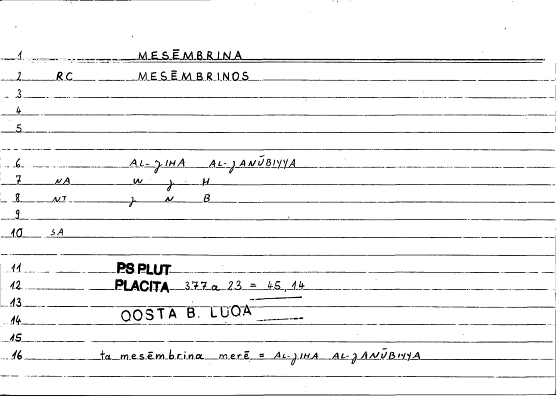 1 MESĒMBRINA
2 RC MESĒMBRINOS
3
4
5
6 AL-ȜIHA AL-ȜANŪBIYYA
7 NA W Ȝ H
8 NT Ȝ N B
9
10 SA
11 PS PLUT
12 PLACITA 377 a 23 = 45, 14
13
14 QOSTA B. LUQA
15
16 ta mesēmbrina merē = AL-ȜIHA AL-ȜANŪBIYYA